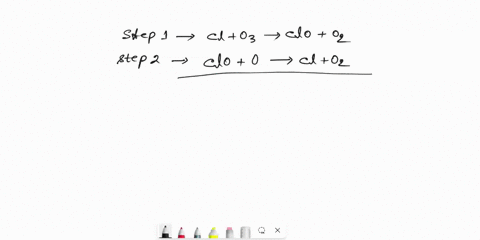 Step 1 → Cl + O3 → ClO + O2
Step 2 → ClO + O → Cl + O2